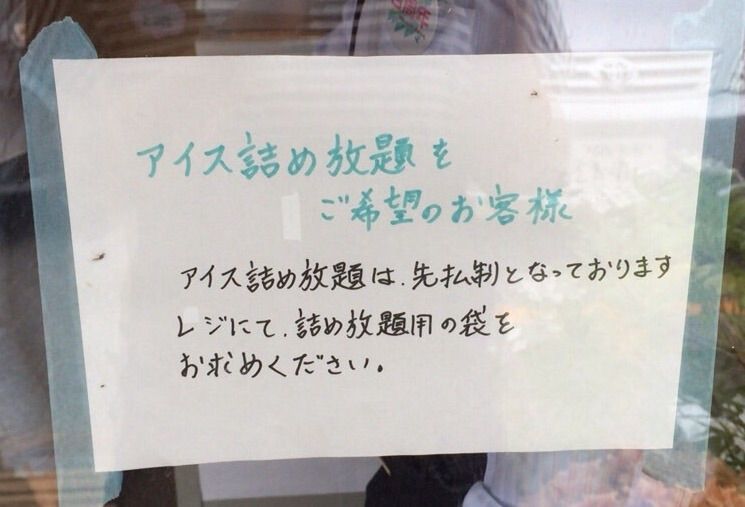 アイス詰め放題を
ご希望のお客様
アイス詰め放題は、先払制となっております
レジにて、詰め放題用の袋を
お求めください。